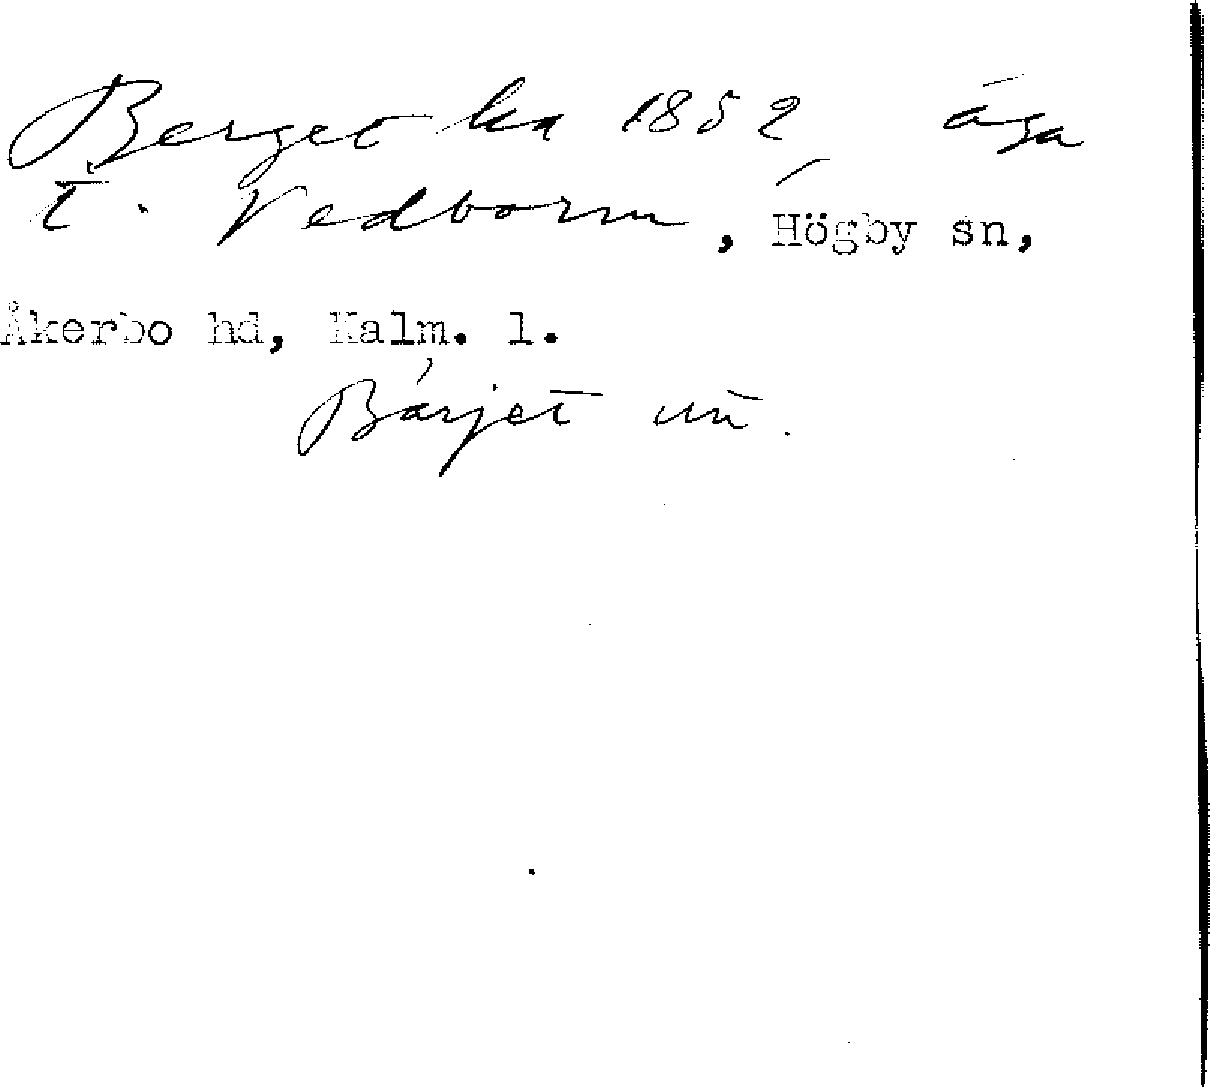 Berget ka 1852, äga
t. Vedborm, Högby sn,
Åkerbo hd, Kalm. l.
Bärjet un.